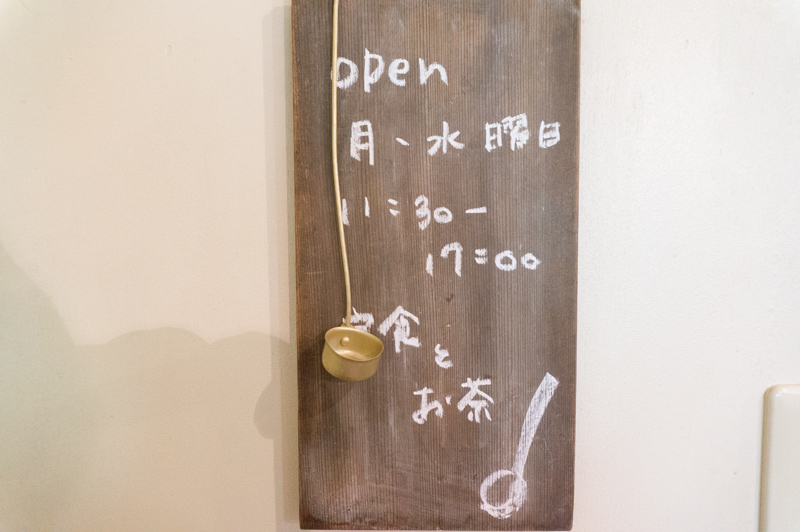 open
月、水曜日
11:30-
17:00
定食
と
お茶